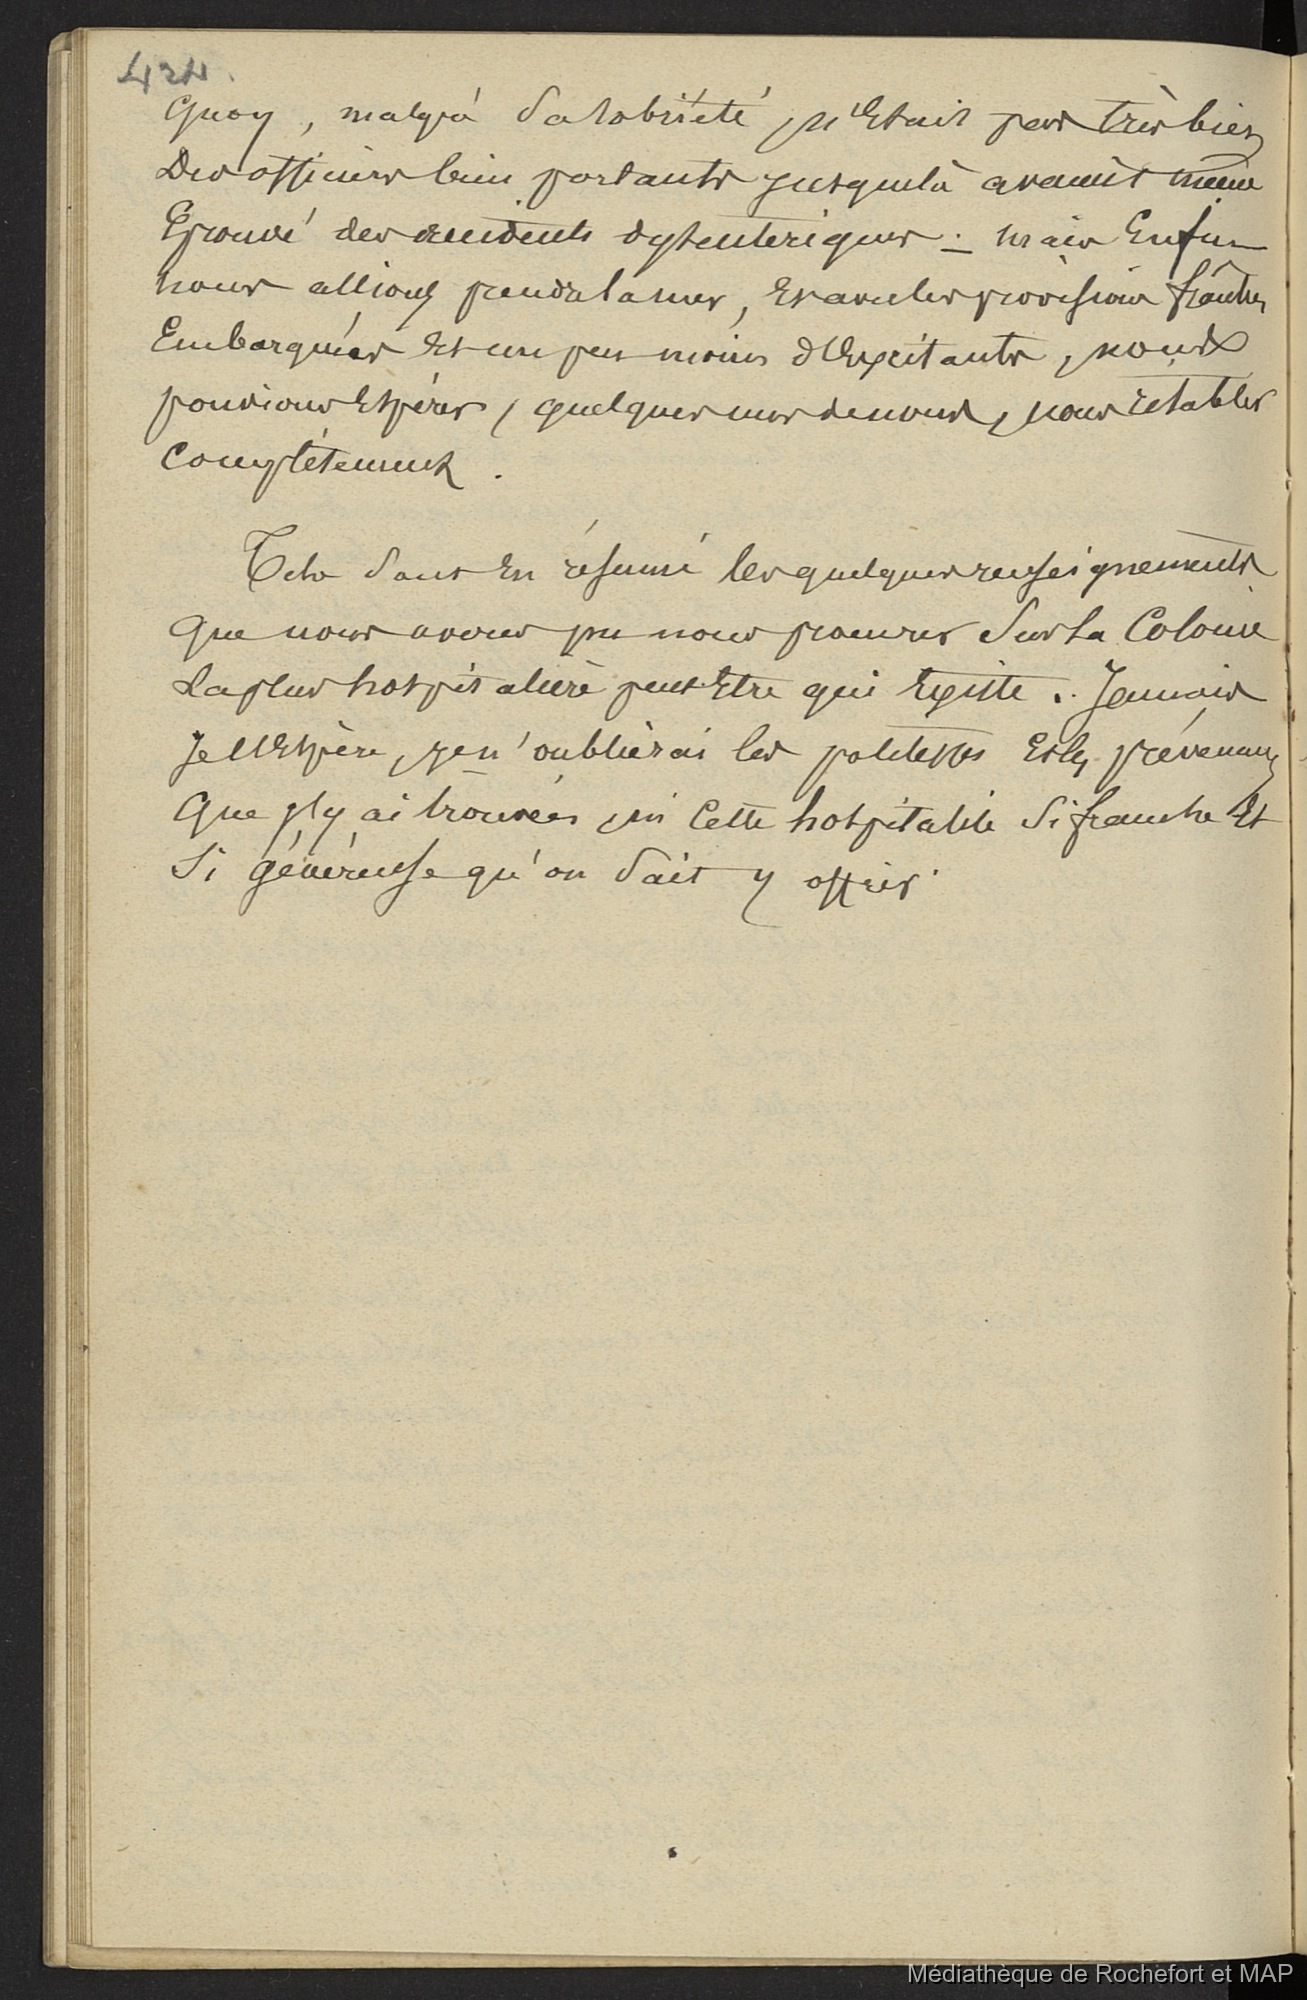 424.
Quoy, malgré sa sobriété, n'était pas très bien
Des officiers bien portants jusque là avaient même
Éprouvé des accidents dysentériques. mais Enfin
nous allions prendre la mer, Et avec les provisions fraîches
Embarquées Et un peu moins d'Excitants, nous
pouvions Espérer, quelques uns de nous, nous rétablir
Complètement.
Tels sont En résumé les quelques renseignements
Que nous avons pu nous procurer sur la Colonie
La plus hospitalière peut Etre qui Existe. Jamais
Je l'Espère, je n'oublierai les politesses Et les prévenances
Que j'y ai trouvées, ni Cette hospitalité si franche Et
Si généreuse qu'on sait y offrir
Médiathèque de Rochefort et MAP